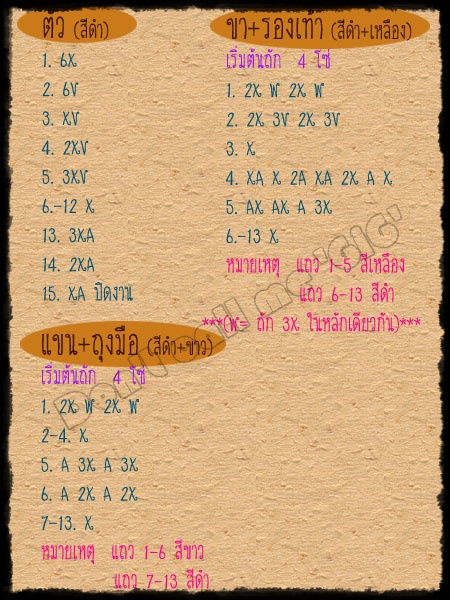 ตัว (สีดำ)
1. 6X
2. 6V
3. XV
4. 2XV
5. 3XV
6.-12 X
13. 3XA
14. 2XA
15. XA ปิดงาน
แขน+ถุงมือ (สีดำ+ขาว)
เริ่มต้นถัก 4 โซ่
1. 2X W 2X W
2-4. X
5. A 3X A 3X
6. A 2X A 2X
7-13. X
หมายเหตุ แถว 1-6 สีขาว
แถว 7-13 สีดำ
ขา+รองเท้า (สีดำ+เหลือง)
เริ่มต้นถัก 4 โซ่
1. 2X W 2X W
2. 2X 3V 2X 3V
3. X
4. XA X 2A XA 2X A X
5. AX AX A 3X
6.-13 X
หมายเหตุ แถว 1-5 สีเหลือง
แถว 6-13 สีดำ
***(W= ถัก 3X ในหลักเดียวกัน)***